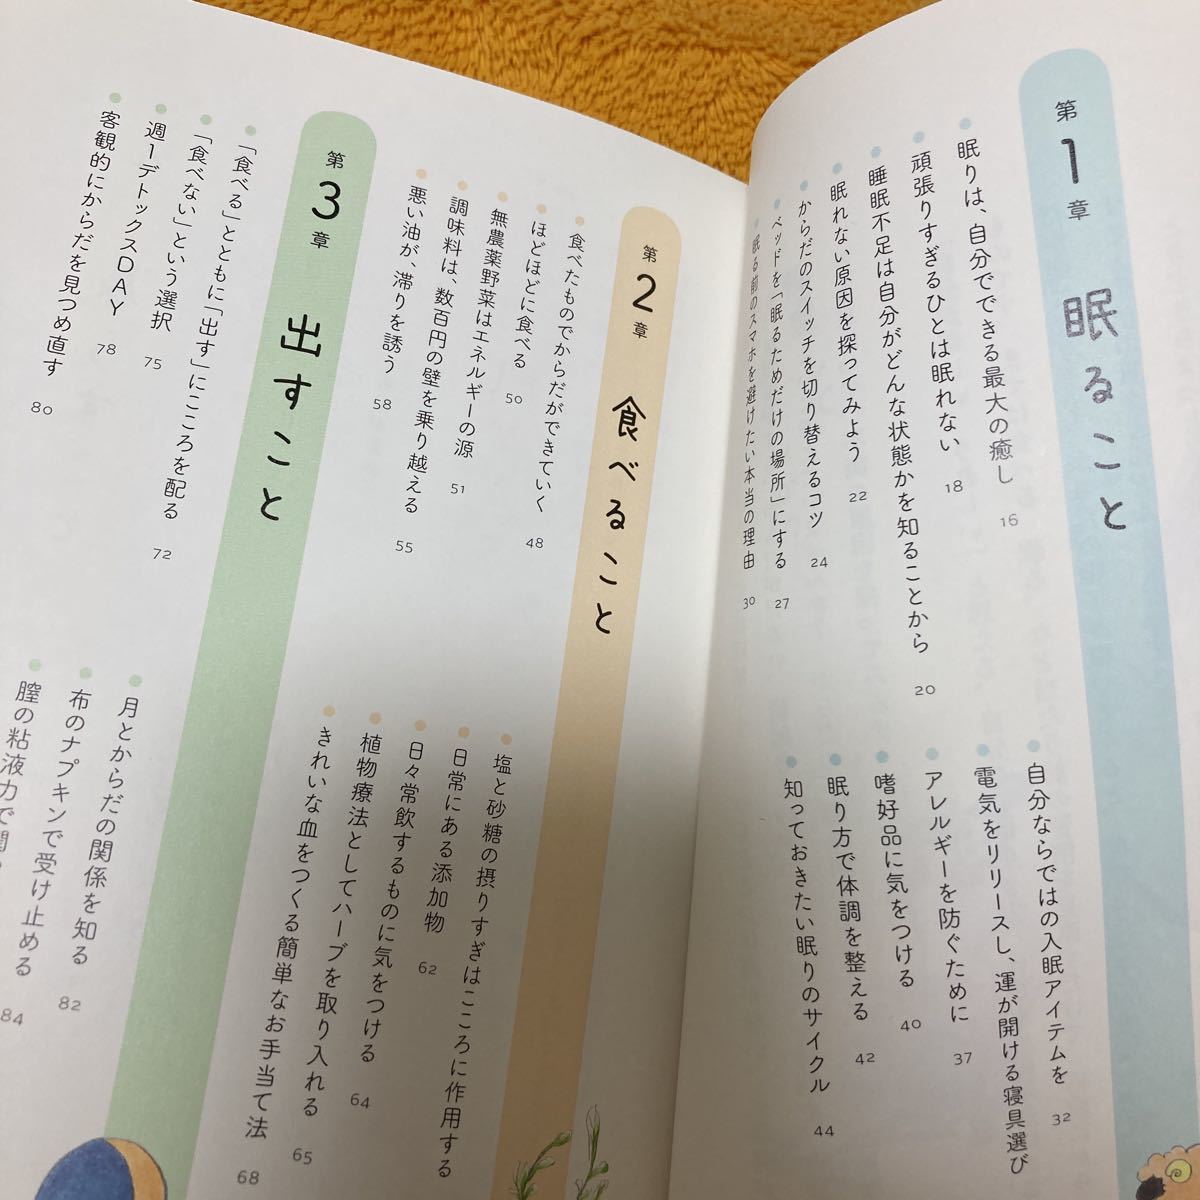 第1章 眠ること
眠りは、自分でできる最大の癒し 16
頑張りすぎるひとは眠れない 18
睡眠不足は自分がどんな状態かを知ることから 20
眠れない原因を探ってみよう 22
からだのスイッチを切り替えるコツ 24
ベッドを「眠るためだけの場所」にする 27
眠る前のスマホを避けたい本当の理由 30
自分ならではの入眠アイテムを 32
電気をリリースし、運が開ける寝具選び
アレルギーを防ぐために 37
嗜好品に気をつける 40
眠り方で体調を整える 42
知っておきたい眠りのサイクル 44
第2章 食べること
食べたものでからだができていく 48
ほどほどに食べる 50
無農薬野菜はエネルギーの源 51
調味料は、数百円の壁を乗り越える 55
悪い油が、滞りを誘う 58
塩と砂糖の摂りすぎはこころに作用する
日常にある添加物 62
日々常飲するものに気をつける 64
植物療法としてハーブを取り入れる 65
きれいな血をつくる簡単なお手当て法 68
第3章 出すこと
「食べる」とともに「出す」にこころを配る 72
「食べない」という選択 75
週1デトックスDAY 78
客観的にからだを見つめ直す 80
月とからだの関係を知る 82
布のナプキンで受け止める 84
膣の粘液力で